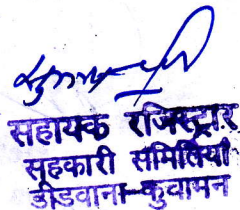 सहायक रजिस्ट्रार
सहकारी समितियाँ
डीडवाना-कुचामन